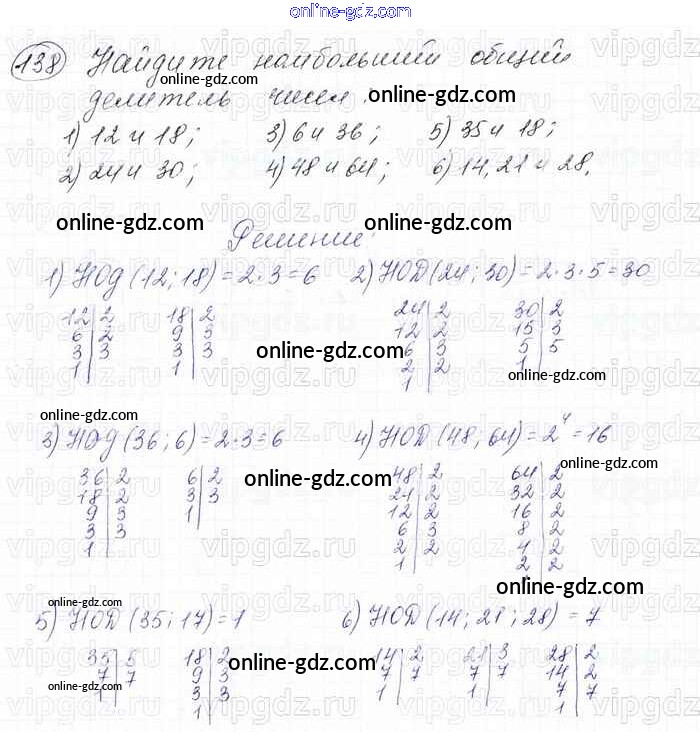 online-gdz.com
138 Найдите наибольший общий
делитель чисел.
online-gdz.com
1) 12 и 18; 3) 6 и 36; 5) 35 и 18;
2) 24 и 30; 4) 48 и 64; 6) 14, 21 и 28.
online-gdz.com
online-gdz.com
Решение:
1) НОД (12; 18) = 2·3 = 6 2) НОД (24; 30) = 2·3·5 = 30
12|2 18|2 24|2 30|2
6|2 9|3 12|2 15|3
3|3 3|3 6|3 5|5
1| 1| 2|2 1|
1|
online-gdz.com
online-gdz.com
online-gdz.com
3) НОД (36; 6) = 2·3 = 6 4) НОД (48; 64) = 2⁴ = 16
36|2 6|2 48|2 64|2
18|2 3|3 24|2 32|2
9|3 1| 12|2 16|2
3|3 6|3 8|2
1| 2|2 4|2
1| 2|2
online-gdz.com
online-gdz.com
online-gdz.com
online-gdz.com
5) НОД (35; 17) = 1 6) НОД (14; 21; 28) = 7
35|5 18|2 14|2 21|3 28|2
7|7 9|3 7|7 7|7 14|2
1| 3|3 1| 1| 7|7
1| 1|
online-gdz.com
online-gdz.com
online-gdz.com
vipgdz.ru